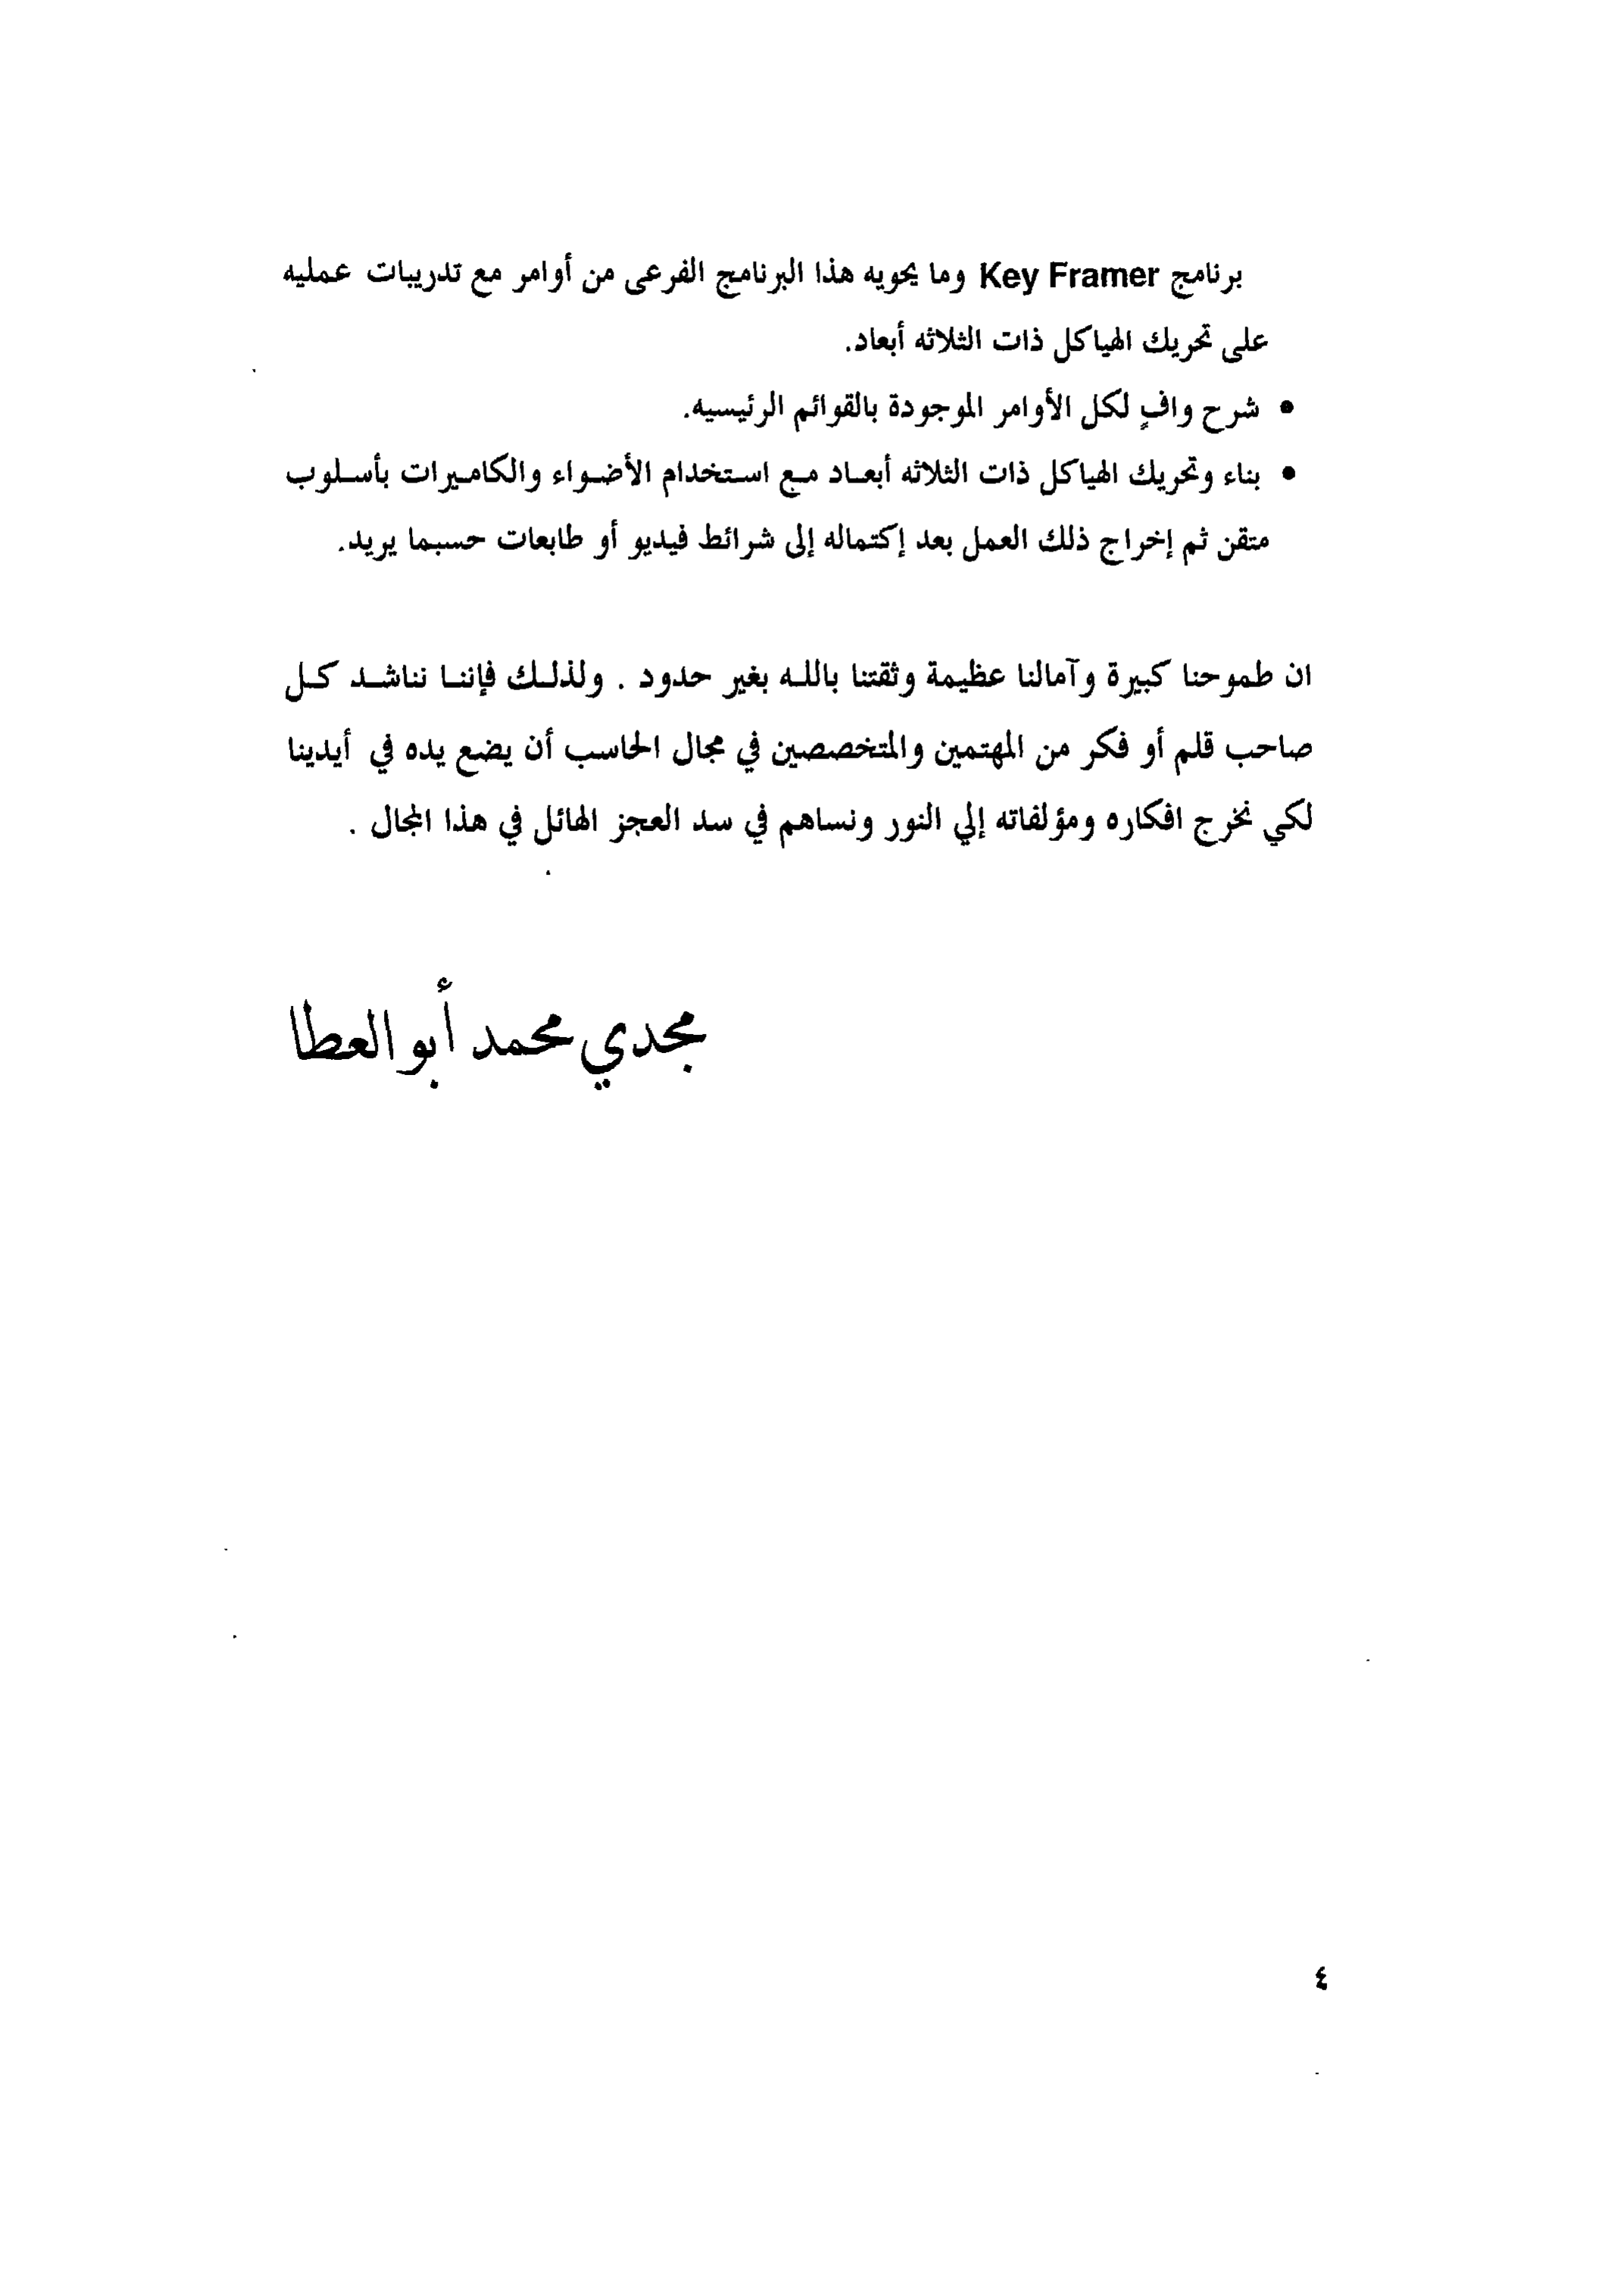 برنامج Key Framer وما يحويه هذا البرنامج الفرعى من أوامر مع تدريبات عمليه
على تحريك الهياكل ذات الثلاثه أبعاد.
• شرح وافٍ لكل الأوامر الموجودة بالقوائم الرئيسيه.
• بناء وتحريك الهياكل ذات الثلاثه أبعـاد مـع اسـتخدام الأضـواء والكامـيرات بأسـلوب
متقن ثم إخراج ذلك العمل بعد إكتماله إلى شرائط فيديو أو طابعات حسبما يريد.
ان طموحنا كبيرة وآمالنا عظيمة وثقتنا باللـه بغير حدود . ولذلـك فإننـا نناشـد كـل
صاحب قلم أو فكر من المهتمين والمتخصصين في مجال الحاسب أن يضع يده في أيدينا
لكي نخرج افكاره ومؤلفاته إلي النور ونساهم في سد العجز الهائل في هذا المجال .
مجدي محمد أبو العطا
٤